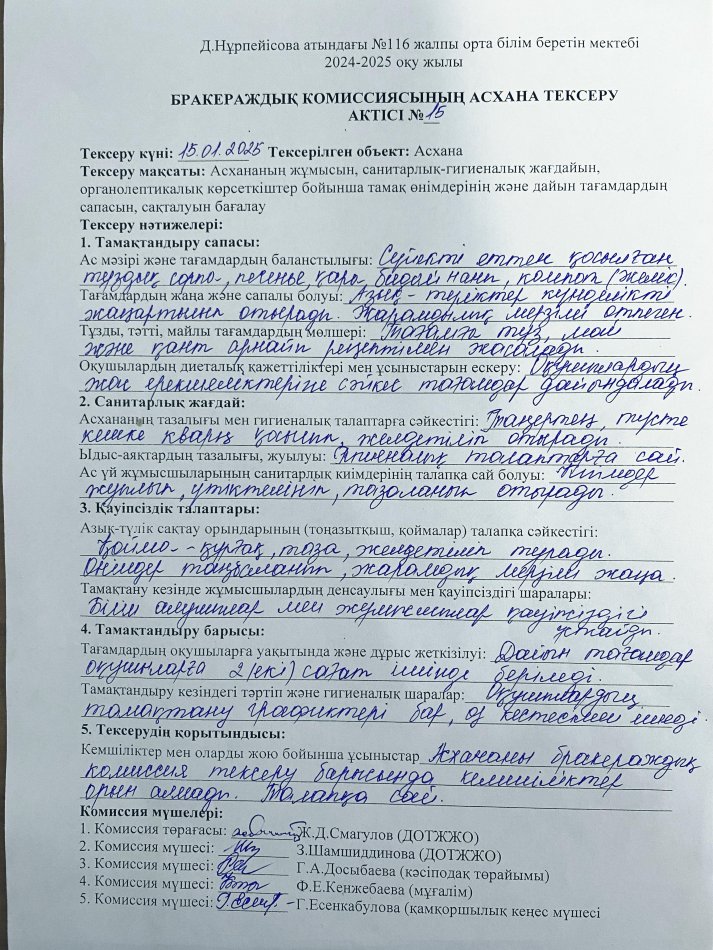 Д.Нұрпейісова атындағы №116 жалпы орта білім беретін мектебі
2024-2025 оқу жылы
БРАКЕРАЖДЫҚ КОМИССИЯСЫНЫҢ АСХАНА ТЕКСЕРУ
АКТІСІ № 15
Тексеру күні: 15.01.2025 Тексерілген объект: Асхана
Тексеру мақсаты: Асхананың жұмысын, санитарлық-гигиеналық жағдайын,
органолептикалық көрсеткіштер бойынша тамақ өнімдерінің және дайын тағамдардың
сапасын, сақталуын бағалау
Тексеру нәтижелері:
1. Тамақтандыру сапасы:
Ас мәзірі және тағамдардың баланстылығы: Сүйекті еттен қосылған
тұздық сорпа, печенье, қара бидай нан, компот (жеміс).
Тағамдардың жаңа және сапалы болуы: Азық-түліктер күнделікті
жаңартылып отырады. Жарамдылық мерзімі өтпеген.
Тұзды, тәтті, майлы тағамдардың мөлшері: Тағамға тұз, май
және қант арнайы рецептімен жасалады.
Оқушылардың диеталық қажеттіліктері мен ұсыныстарын ескеру: Оқушылардың
жас ерекшелектеріне сәйкес тағамдар дайындалады.
2. Санитарлық жағдай:
Асхананың тазалығы мен гигиеналық талаптарға сәйкестігі: Таңертең, түсте
кешке кварц қосылып, желдетіліп отырады.
Ыдыс-аяқтардың тазалығы, жуылуы: Гигиеналық талаптарға сай.
Ас үй жұмысшыларының санитарлық киімдерінің талапқа сай болуы: Киімдер
жуылып, үтіктелініп, тазаланып отырады.
3. Қауіпсіздік талаптары:
Азық-түлік сақтау орындарының (тоңазытқыш, қоймалар) талапқа сәйкестігі:
Қойма - құрғақ, таза, желдетіліп тұрады.
Өнімдер таңбаланып, жарамдық мерзімі жаңа.
Тамақтану кезінде жұмысшылардың денсаулығы мен қауіпсіздігі шаралары:
Білім алушылар мен жұмысшылар қауіпсіздігі
4. Тамақтандыру барысы: ұстайды.
Тағамдардың оқушыларға уақытында және дұрыс жеткізілуі: Дайын тағамдар
оқушыларға 2 (екі) сағат ішінде беріледі.
Тамақтандыру кезіндегі тәртіп және гигиеналық шаралар: Оқушылардың
тамақтану графиктері бар, өз кестесімен ішеді.
5. Тексерудің қорытындысы:
Кемшіліктер мен оларды жою бойынша ұсыныстар Асхананы бракераждық
комиссия тексеру барысында кемшіліктер
орын алмады. Талапқа сай.
Комиссия мүшелері:
1. Комиссия төрағасы: Ж.Д.Смагулов (ДОТЖЖО)
2. Комиссия мүшесі: З.Шамшиддинова (ДОТЖЖО)
3. Комиссия мүшесі: Г.А.Досыбаева (кәсіподақ төрайымы)
4. Комиссия мүшесі: Ф.Е.Кенжебаева (мұғалім)
5. Комиссия мүшесі: Г.Есенкабулова (қамқоршылық кеңес мүшесі